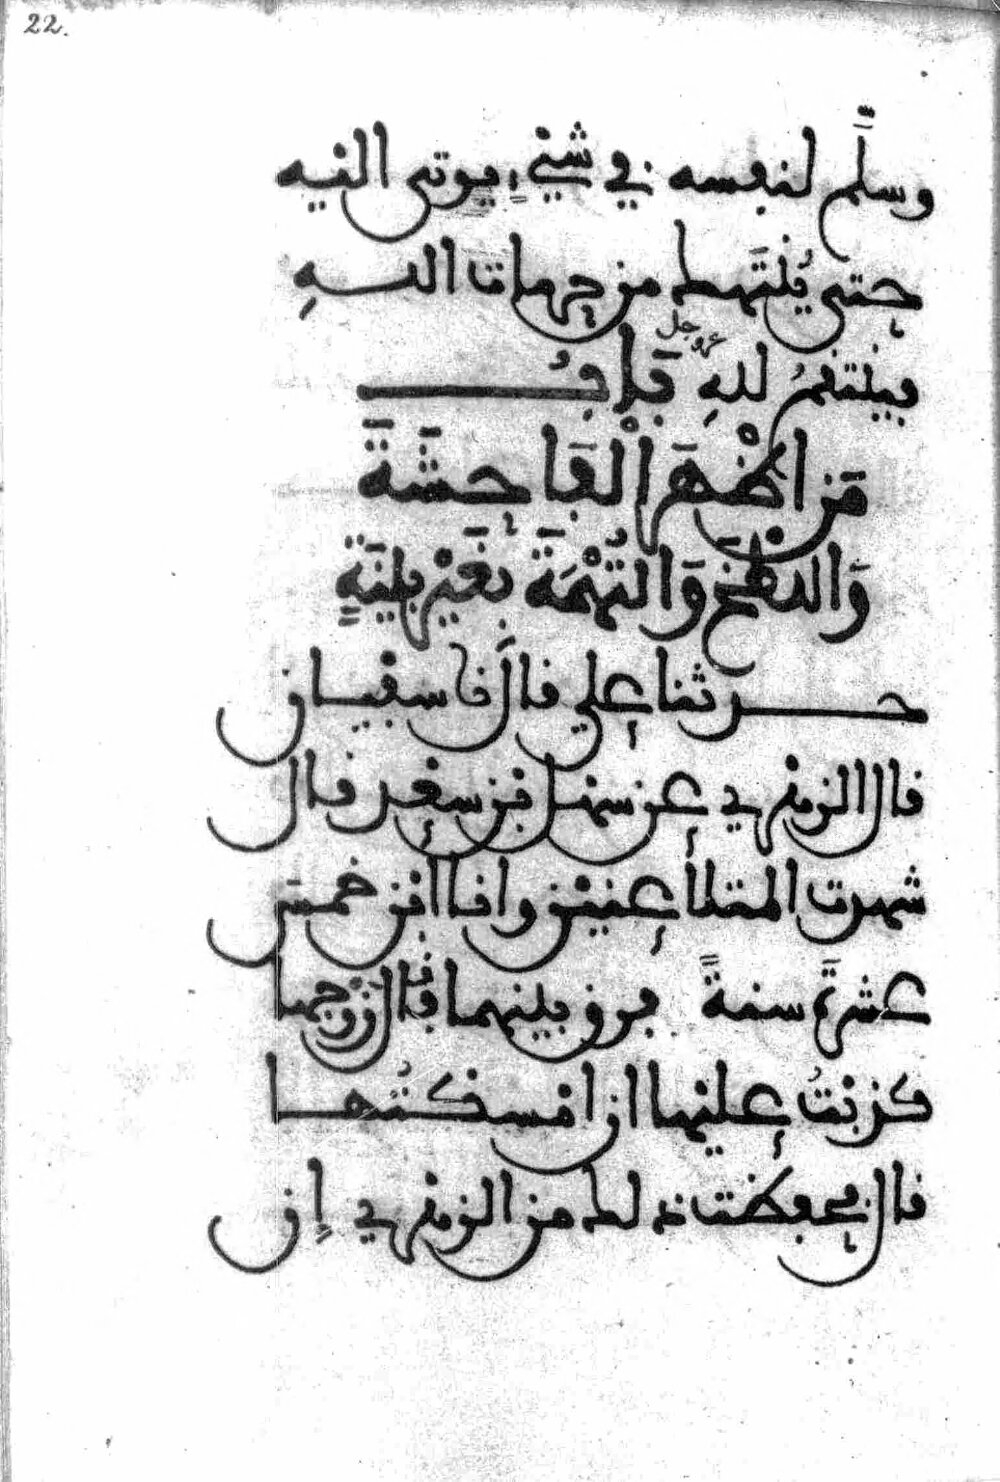 22.
وسلَّم لنفسه في شيء يوتى اليه
حتى يُنتَهك من حرمات الله
فينتقمُ للهِ عز وجل بَابُ
مَن اظْهَرَ الْفَاحِشَةَ
وَاللطْخَ وَالتُّهْمَةَ بغَيْرِ بيّنَةٍ
حدثنا علي قال نا سفيان
قال الزهري عن سهل بن سعد قال
شهدت المتلاعنين وانا ابن خمس
عشرةَ سنةً فرق بينهما فقال زوجها
كذبتُ عليها ان امسكتُها
قال فحفظت ذلك من الزهري إن